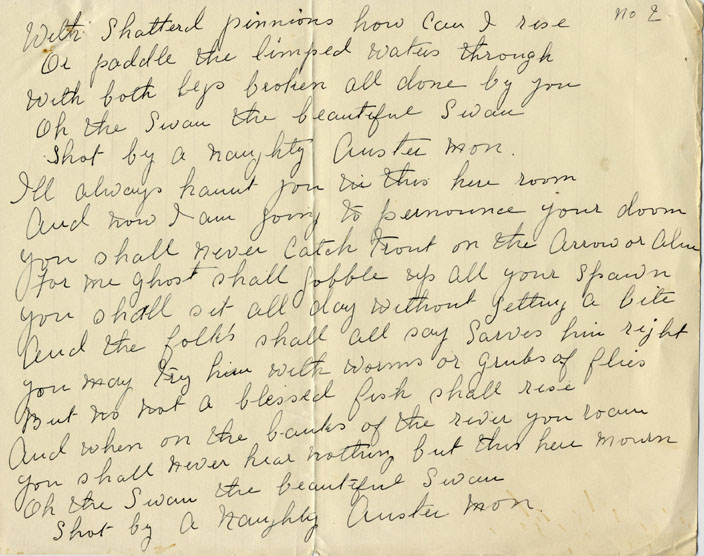 No 2
With Shatterd pinnions how can I rise
Or paddle the limped waters through
With both legs broken all done by you
Oh the Swan the beautiful Swan
Shot by a Naughty Auster Mon.
I'll always haunt you in this here room
And now I am going to pernounce your doom
you shall never Catch Trout on the Arrow or Alne
For me ghost shall gobble up all your Spawn
you shall sit all day without getting a bite
And the folk's shall all say Sarves him right
you may try him with worms or grubs of flies
But no not a blessed fish shall rise
And when on the banks of the river you roam
you shall never hear nothing but this here mourn
Oh the Swan the beautiful Swan
Shot by a Naughty Auster Mon.